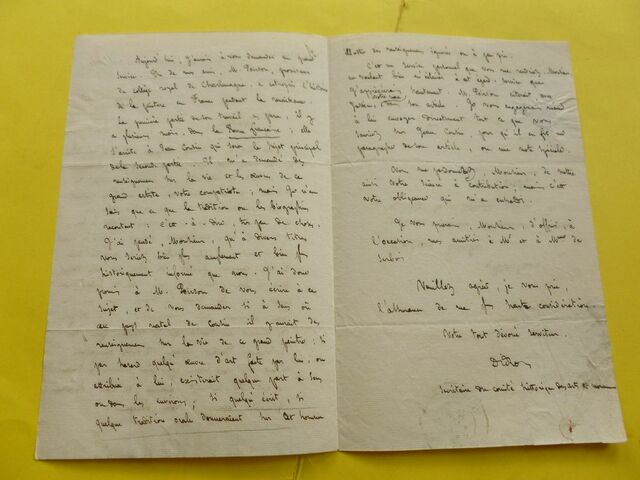 Aujourd'hui, j'aurais à vous demander un grand
service. Un de mes amis, M. Poirson, proviseur
du collège royal de Charlemagne, a entrepris l'histoire
de la peinture en France pendant la renaissance
la première partie de son travail a paru, il y
a plusieurs mois, dans la Revue française; elle
s'arrête à Jean Cousin qui sera le sujet principal
de la seconde partie. Il m'a demandé des
renseignemens sur la vie et les œuvres de ce
grand artiste, votre compatriote; mais je n'en
sais que ce que la tradition ou les biographies
racontent: c'est-à-dire, très peu de chose.
J'ai pensé, Monsieur, qu'à divers titres
vous seriez bien plus amplement et bien plus
historiquement informé que nous. J'ai donc
promis à M. Poirson de vous écrire à ce
sujet, et de vous demander si à Sens où
au pays natal de Cousin il y aurait des
renseignemens sur la vie de ce grand peintre; si
par hasard quelqu'œuvre d'art faite par lui, ou
attribuée à lui, existerait quelque part à Sens
ou dans les environs; si quelqu'écrit, si
quelque tradition orale donneraient sur cet homme
illustre des renseignemens ignorés ou à peu près.
C'est un service personnel que vous me rendriez, Monsieur
en voulant bien m'éclairer à cet égard. Service que
j'apprécierais hautement. M. Poirson citerait avec
votre nom
dans son article. Je vous engagerais même
à lui envoyer directement tout ce que vous
sauriez sur Jean Cousin pour qu'il en fît un
paragraphe de son article, ou une note spéciale.
Vous me pardonnerez, Monsieur, de mettre
ainsi votre science à contribution; mais c'est
votre obligeance qui m'a enhardi.
Je vous prierai, Monsieur, d'offrir, à
l'occasion, mes amitiés à Mr et à Mme de
Veuillez agréer, je vous prie,
l'assurance de ma plus haute considération
Votre tout dévoué serviteur.
Didron
Secrétaire du comité historique des arts et monumens